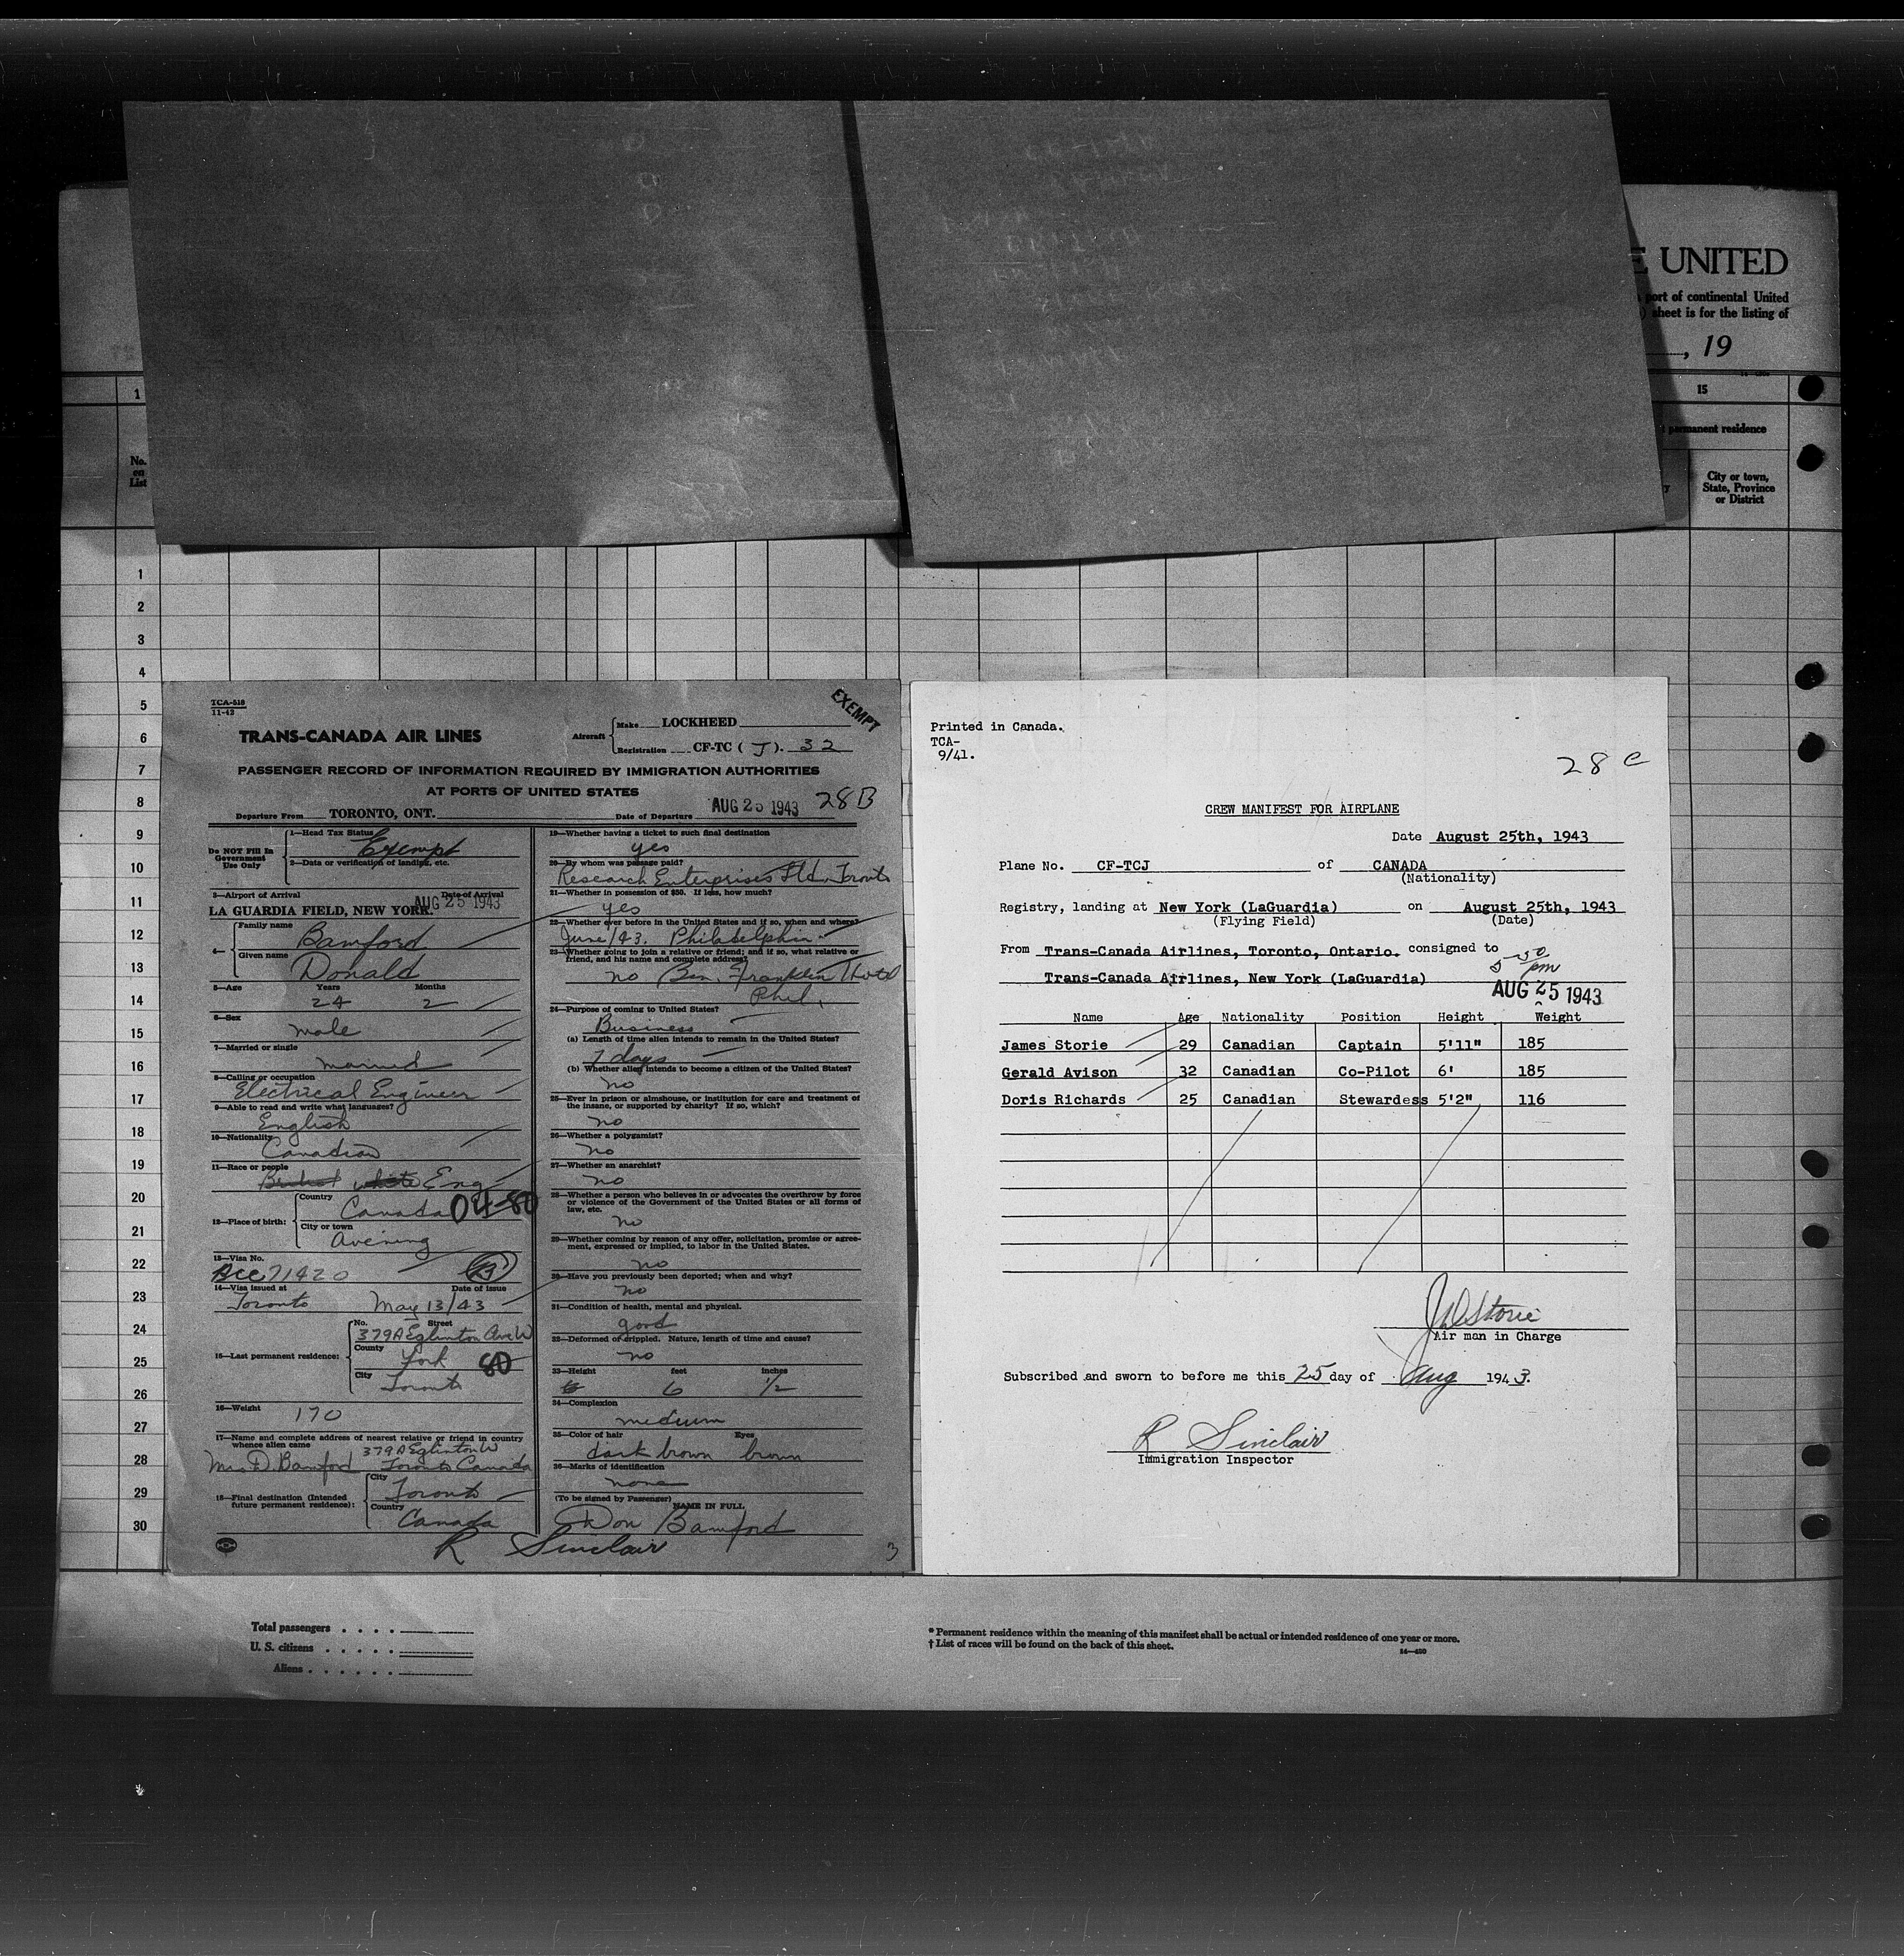 E UNITED
port of continental United
) sheet is for the listing of
, 19
1
15
permanent residence
No.
on
List
City or town,
State, Province
or District
1
2
3
4
5
6
7
8
9
10
11
12
13
14
15
16
17
18
19
20
21
22
23
24
25
26
27
28
29
30
TCA-518
11-42
EXEMPT
TRANS-CANADA AIR LINES
Aircraft
Make LOCKHEED
Registration CF-TC ( J ). 32
PASSENGER RECORD OF INFORMATION REQUIRED BY IMMIGRATION AUTHORITIES
AT PORTS OF UNITED STATES
Departure From TORONTO, ONT. Date of Departure AUG 25 1943 28B
Do NOT Fill In
Government
Use Only
1—Head Tax Status
Exempt
2—Data or verification of landing, etc.
3—Airport of Arrival Date of Arrival
LA GUARDIA FIELD, NEW YORK. AUG 25 1943
4—
Family name
Bamford
Given name
Donald
5—Age Years Months
24 2
6—Sex
male
7—Married or single
married
8—Calling or occupation
Electrical Engineer
9—Able to read and write what languages?
English
10—Nationality
Canadian
11—Race or people
white Eng
12—Place of birth:
Country
Canada 04-80
City or town
Avening
13—Visa No.
ACC 71420
14—Visa issued at Date of issue
Toronto May 13/43
15—Last permanent residence:
No. Street
379A Eglinton Ave W
County
York 80
City
Toronto
16—Weight 170
17—Name and complete address of nearest relative or friend in country
whence alien came 379A Eglinton W
Mrs D. Bamford Toronto Canada
18—Final destination (Intended
future permanent residence):
City
Toronto
Country
Canada
19—Whether having a ticket to such final destination
yes
20—By whom was passage paid?
Research Enterprises Ltd. Toronto
21—Whether in possession of $50. If less, how much?
yes
22—Whether ever before in the United States and if so, when and where?
June/43. Philadelphia
23—Whether going to join a relative or friend; and if so, what relative or
friend, and his name and complete address?
no Ben. Franklin Hotel
Phil.
24—Purpose of coming to United States?
Business
(a) Length of time alien intends to remain in the United States?
7 days
(b) Whether alien intends to become a citizen of the United States?
no
25—Ever in prison or almshouse, or institution for care and treatment of
the insane, or supported by charity? If so, which?
no
26—Whether a polygamist?
no
27—Whether an anarchist?
no
28—Whether a person who believes in or advocates the overthrow by force
or violence of the Government of the United States or all forms of
law, etc.
no
29—Whether coming by reason of any offer, solicitation, promise or agree-
ment, expressed or implied, to labor in the United States.
no
30—Have you previously been deported; when and why?
no
31—Condition of health, mental and physical.
good
32—Deformed or crippled. Nature, length of time and cause?
no
33—Height feet inches
6 1/2
34—Complexion
medium
35—Color of hair Eyes
dark brown brown
36—Marks of identification
none
(To be signed by Passenger) NAME IN FULL
Don Bamford
R Sinclair
3
Printed in Canada.
TCA-
9/41.
28 C
CREW MANIFEST FOR AIRPLANE
Date August 25th, 1943
Plane No. CF-TCJ of CANADA
(Nationality)
Registry, landing at New York (LaGuardia) on August 25th, 1943
(Flying Field) (Date)
From Trans-Canada Airlines, Toronto, Ontario. consigned to
5 50 pm
Trans-Canada Airlines, New York (LaGuardia)
AUG 25 1943
Name Age Nationality Position Height Weight
James Storie 29 Canadian Captain 5'11" 185
Gerald Avison 32 Canadian Co-Pilot 6' 185
Doris Richards 25 Canadian Stewardess 5'2" 116
Storie
Air man in Charge
Subscribed and sworn to before me this 25 day of Aug 1943.
R Sinclair
Immigration Inspector
Total passengers . . . .
U. S. citizens . . . . .
Aliens . . . . . .
* Permanent residence within the meaning of this manifest shall be actual or intended residence of one year or more.
† List of races will be found on the back of this sheet.